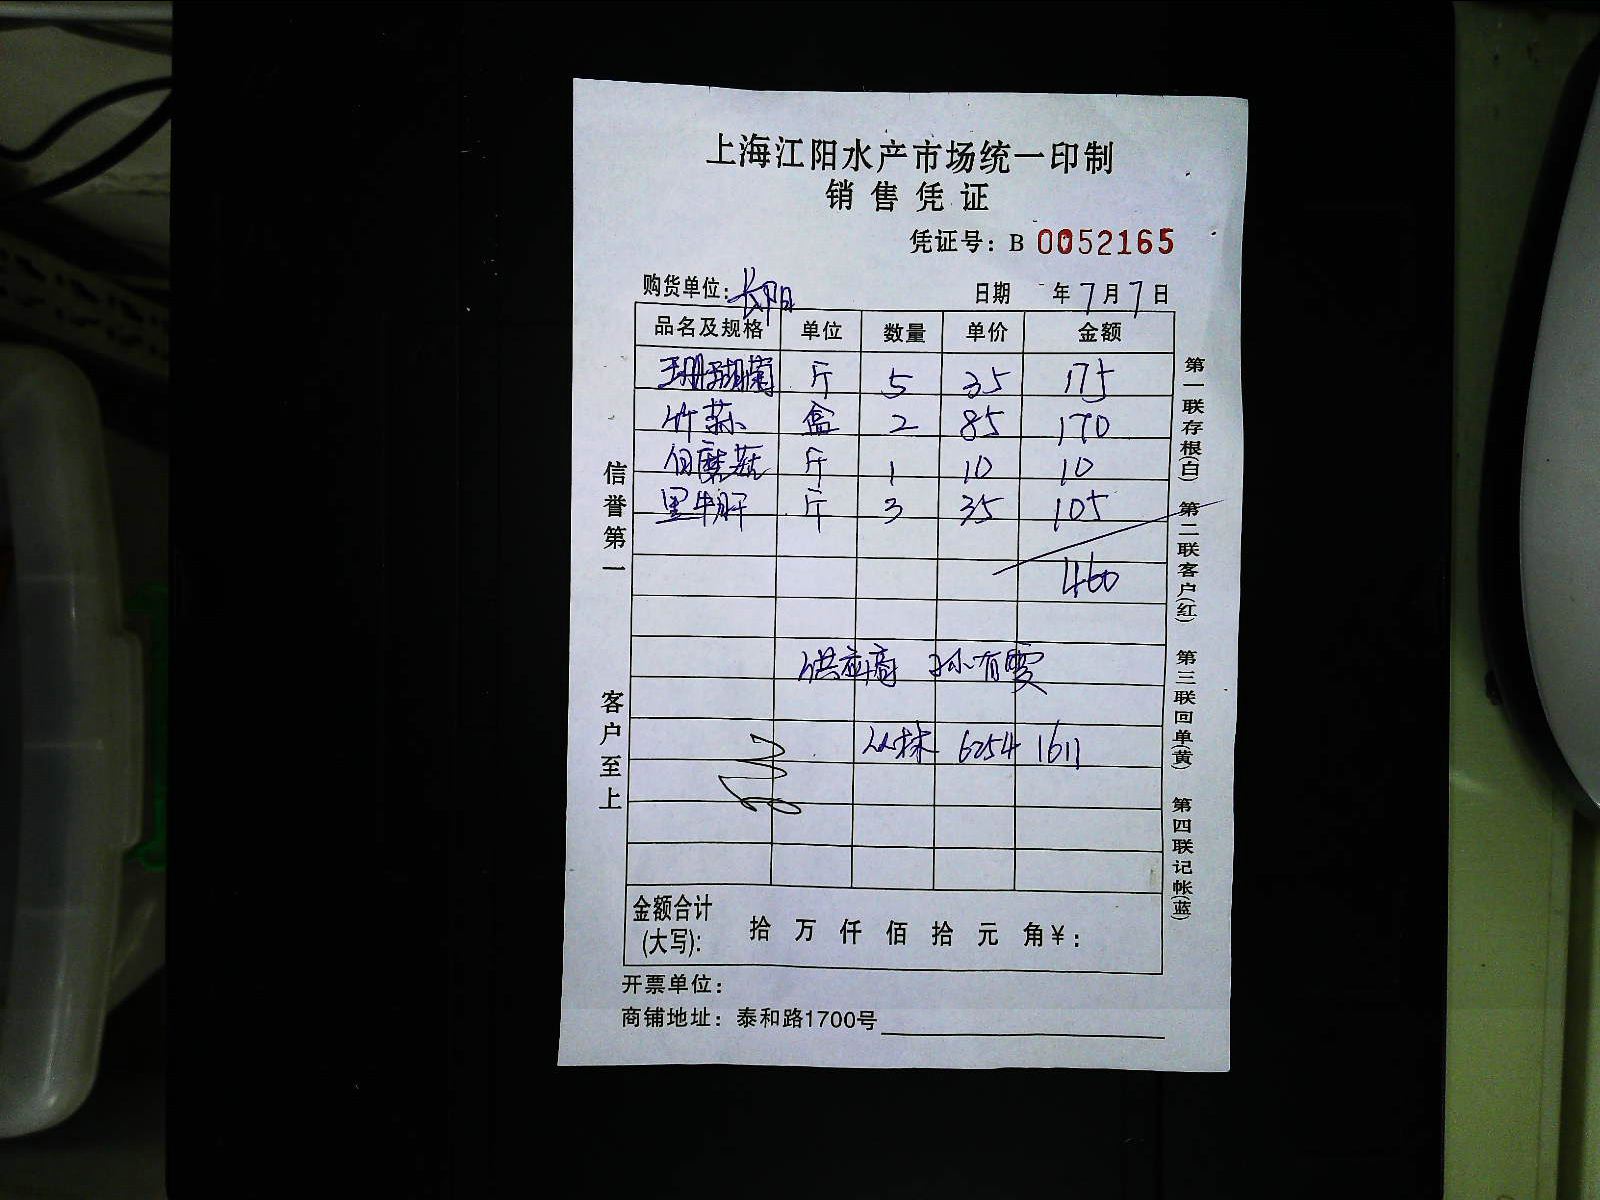 上海江阳水产市场统一印制
销售凭证
凭证号：B 0052165
购货单位：长阳 日期 年7月7日
品名及规格 单位 数量 单价 金额
珊瑚菌 斤 5 35 175
竹荪 盒 2 85 170
白蘑菇 斤 1 10 10
黑牛肝 斤 3 35 105
460
供应商 孙有雯
丛林 6254 1611
金额合计
(大写): 拾 万 仟 佰 拾 元 角 ¥：
开票单位：
商铺地址：泰和路1700号
信誉第一
客户至上
第一联存根(白) 第二联客户(红) 第三联回单(黄) 第四联记帐(蓝)